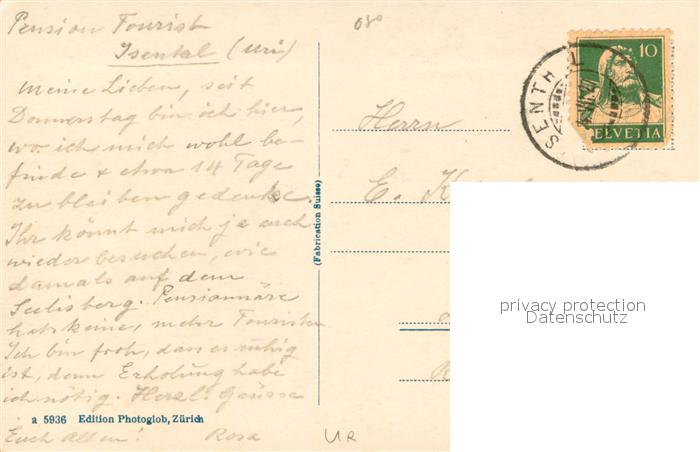 Pension Tourist
Isental (Uri)
Meine Lieben, seit
Donnerstag bin ich hier,
wo ich mich wohl be-
finde & etwa 14 Tage
zu bleiben gedenke.
Ihr könnt mich ja auch
wieder besuchen, wie
damals auf dem
Seelisberg. Pensionnäre
hats keine, mehr Touristen
Ich bin froh, dass es ruhig
ist, denn Erholung habe
ich nötig. Herzl. Grüsse
a 5936 Edition Photoglob, Zürich
Euch Allen! Rosa
UR
(Fabrication Suisse)
080
10
HELVETIA
ISENTHAL
Herrn
E. K
privacy protection
Datenschutz